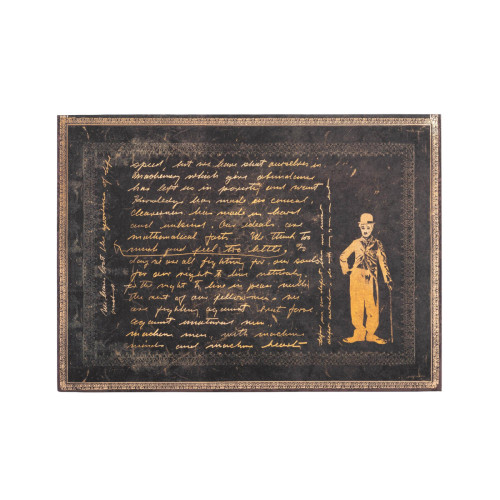 speed, but we have shut ourselves in
machinery which gives abundance
has left us in poverty and want
Knowledge has made us cynical.
Cleverness has made us hard
and unkind. Our ideals are
mathematical facts. We think to
much and feel too little. To
day we are all fighting for our souls
for our right to live naturally,
for the right to live in peace with
the rest of our fellowmen. We
are fighting against brut force
against unatural men
machine men, with machine
minds and machine hearts